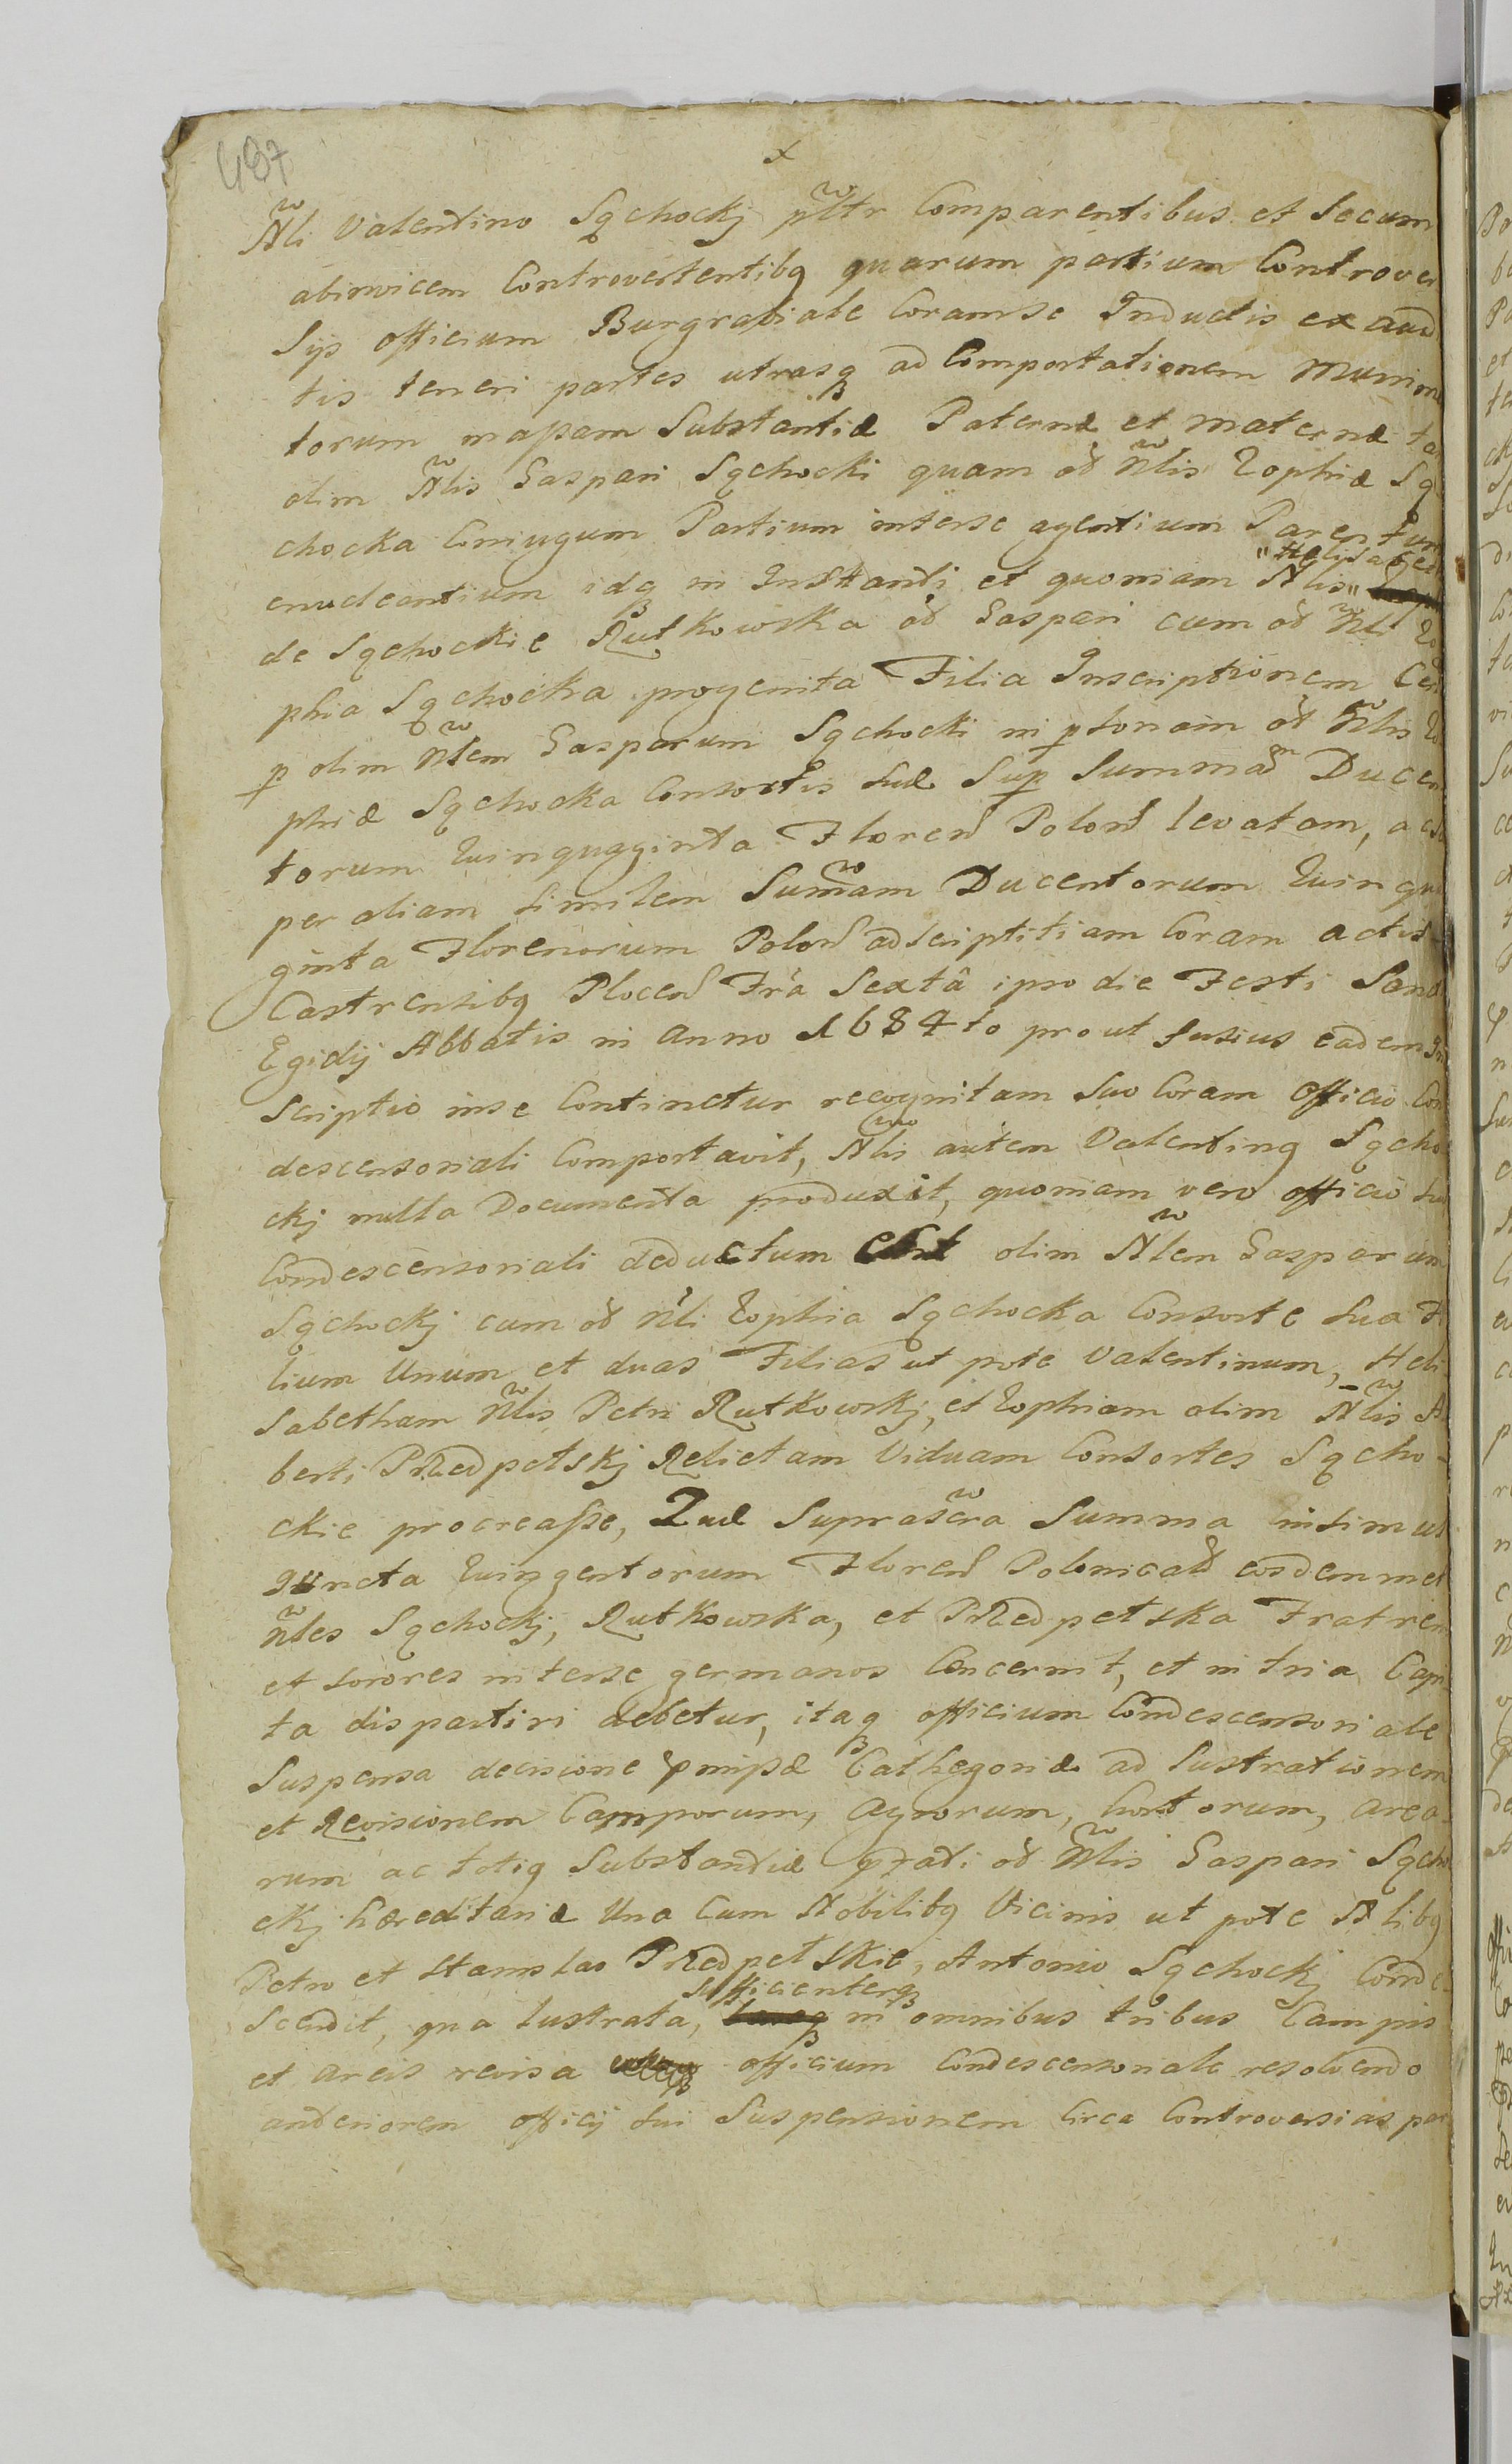 487
x
Nli Valentino Sąchockj pltr Comparentibus et Secum
abinvicem Controvertentibq quarum partium Controver
sijs officium Burgrabiale Coram se Inductis exaud
tis teneri partes utrasq ad Comportationem Munime
torum massam Substantiæ Paternæ et maternæ ta
olim Nlis Gaspari Sąchocki quam oð Nlis Zophiæ Są
chocka Coniugum Partium interse agentium Parentum
enucleantium idq in Instanti et quoniam Nlis " Helisabet
de Sąchockie Rutkowska oð Gaspari cum oð Nli Zo
phia Sąchocka progenita Filia Inscriptionem Cer
p olim Nlem Gasparum Sąchocki in psonam oð Nlis Zo
phiæ Sąchocka Consortis suæ Sup Summam Ducen
torum Quinquaginta Floren Polon levatam, ac
per aliam similem Sumam Ducentorum Quinqua
ginta Florenorum Polon adscriptitiam Coram actis
Castrensibq Plocen Fra Sexta ipso die Festi Sanc
Egidij Abbatis in anno 1684to prout fusius eadem In
scriptio inse Continetur recognitam Suo Coram Officio Con
descensoriali Comportavit, Nlis autem Valentinq Sącho
ckj nulla Documenta produxit, quoniam vero officio suo
Condescensoriali deductum est olim Nlem Gasparum
Sąchockj cum oð Nli Zophia Sąchocka Consorte sua Fi
lium Unum et duas Filias ut pote Valentinum, Heli
sabetham Nlis Petri Rutkowskj, et Zophiam olim Nlis Al
berti Przedpełskj Relictam Viduam Consortes Sącho-
ckie procreasse, Quæ Suprascra Summa insimul
iuncta Quingentorum Floren Polonicað eosdemmet
Nles Sąchockj, Rutkowska, et Przedpełska Fratrem
et sorores interse germanos Concernit, et in tria Capi
ta dispartiri debetur, itaq officium Condescensoriale
Suspensa decisione pmissæ Cathegoriæ ad lustrationem
et Revisionem Camporum, Agrorum, hortorum, area-
rum ac totiq Substantiæ pfati oð Nlis Gaspari Sącho
ckj hæreditariæ Una Cum Nobilibq Vicinis ut pote Nlibq
Petro et Stanislao Przedpełskie, Antonio Sąchockj Conde-
scendit, qua lustrata, sufficienterq in omnibus tribus Campis
et areis revisa officium Condescensoriale resolvendo
anteriorem officij sui Suspensionem Circa Controversias par